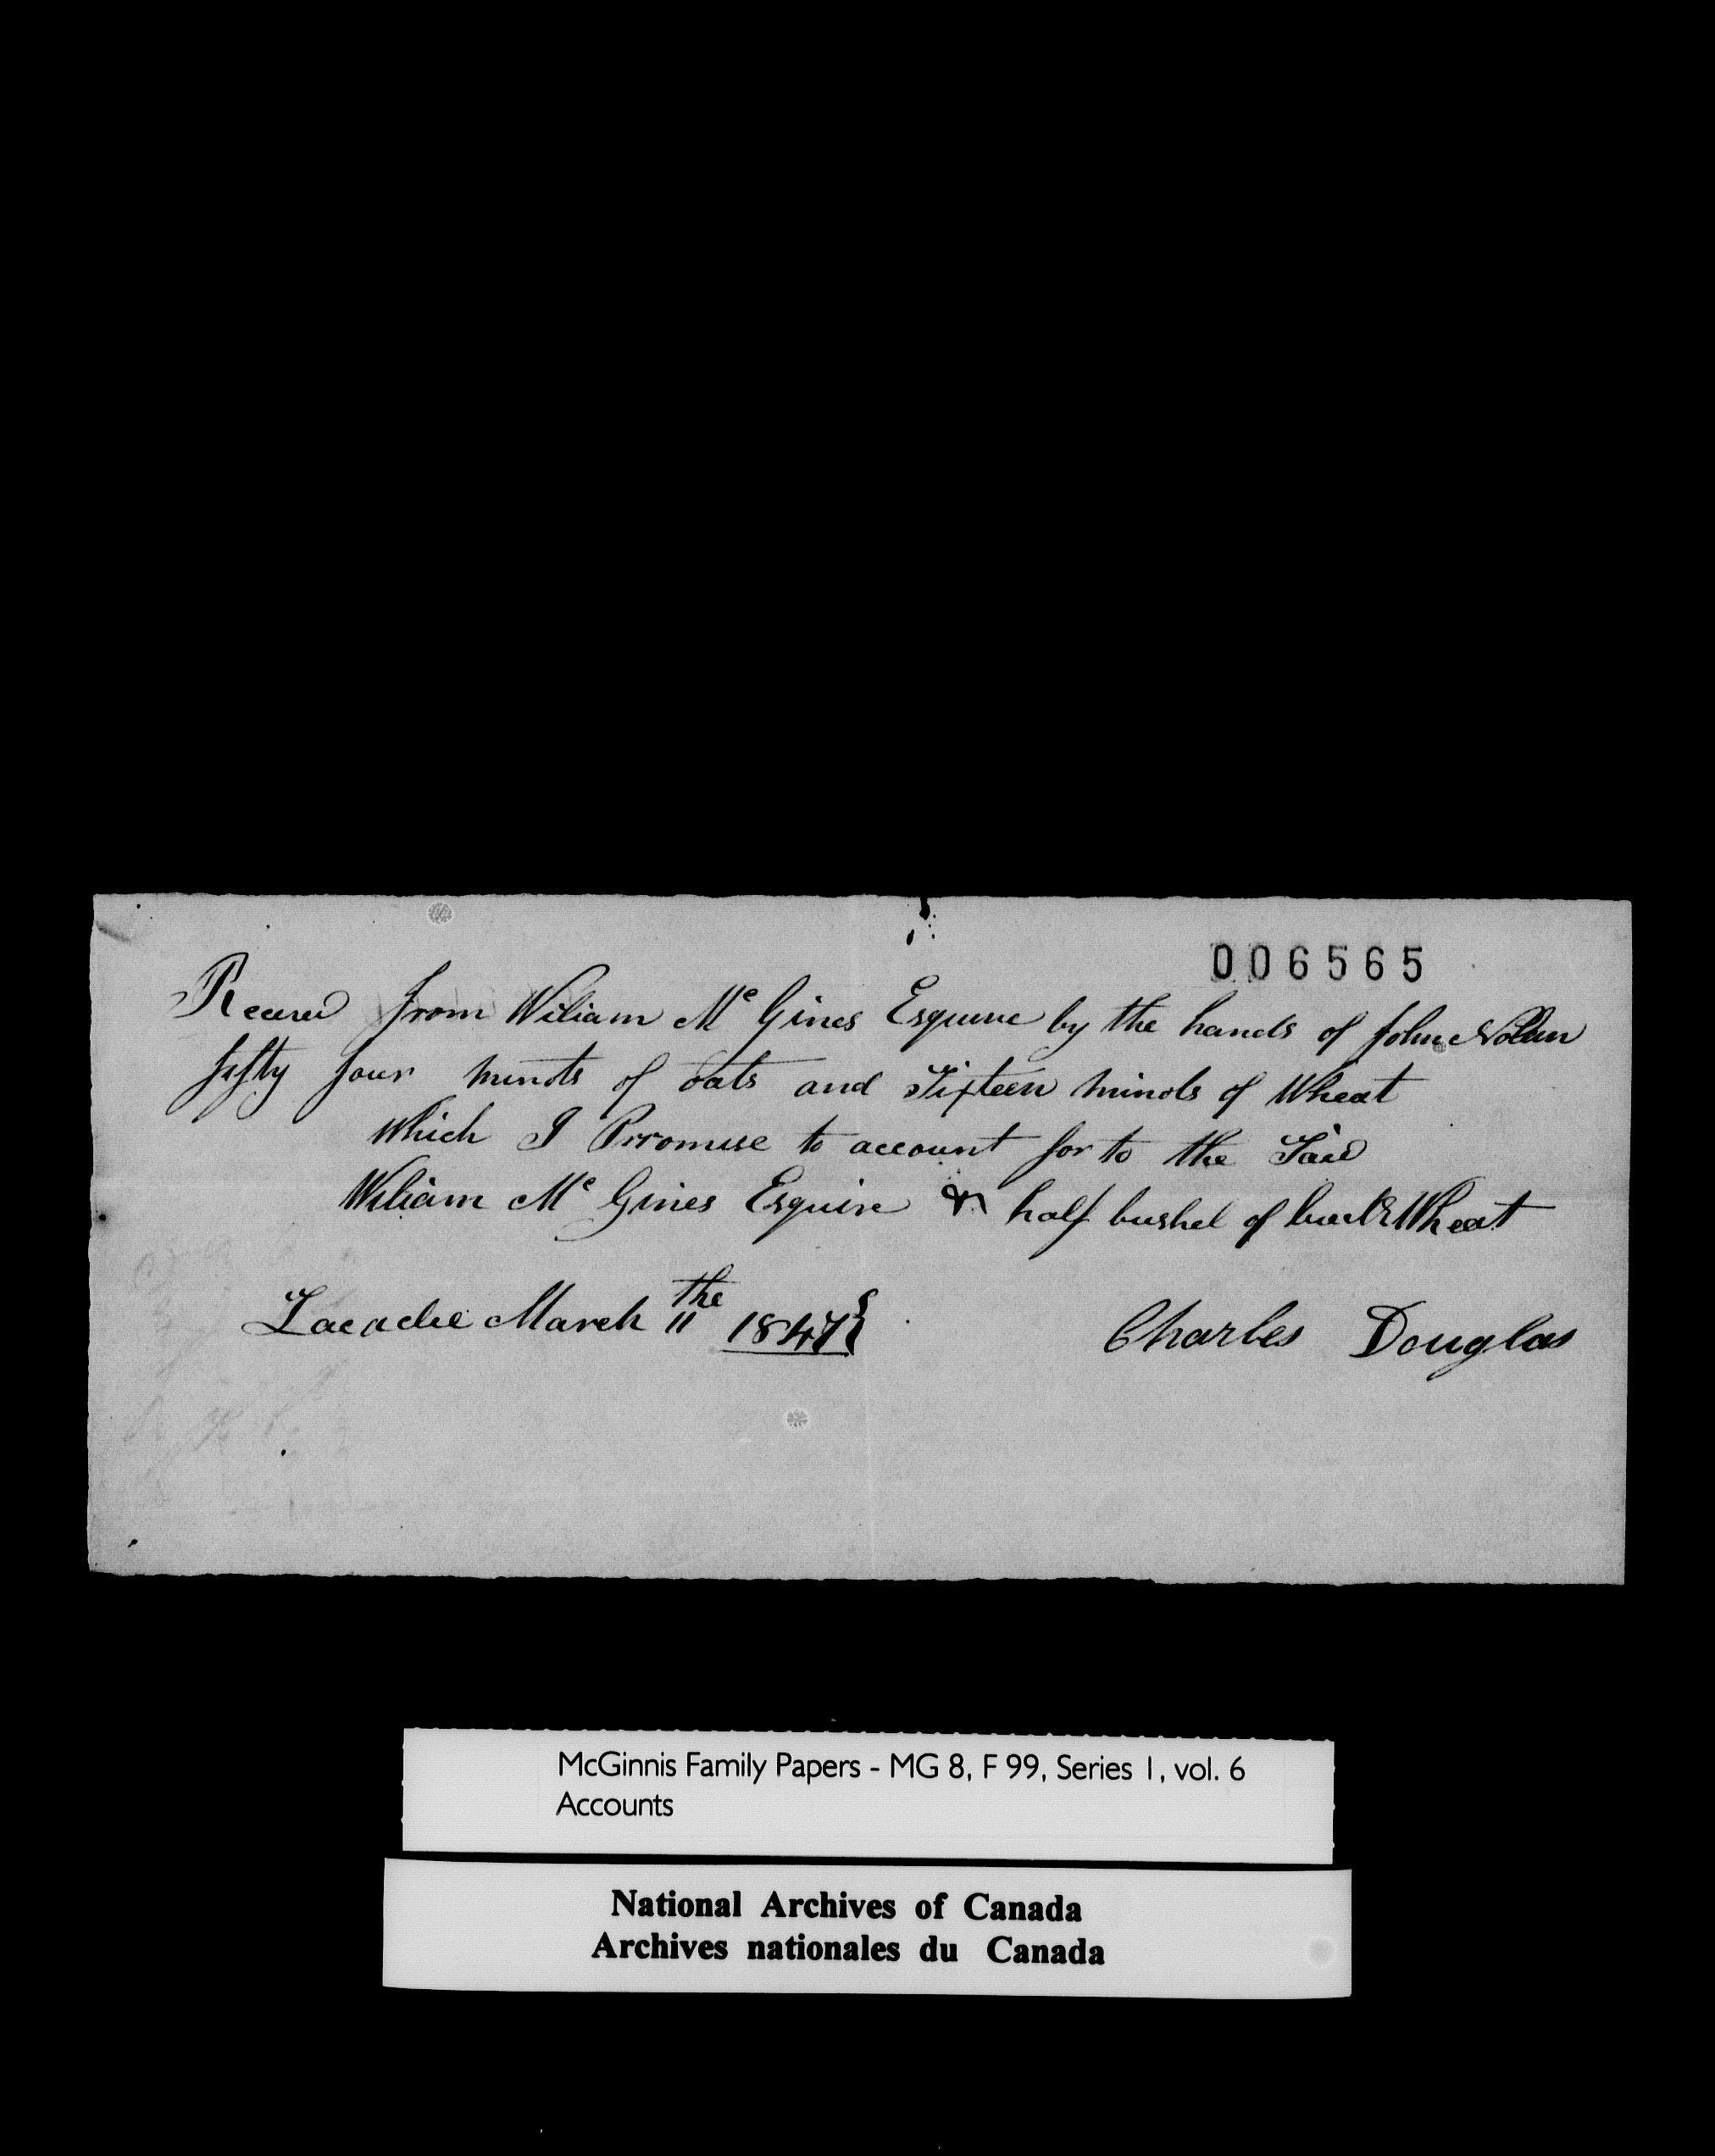 006565
Receved from Wiliam Mc Gines Esquire by the hands of John Nolan
fifty four minots of oats and Sixteen minots of Wheat
which I Prromise to account for to the Said
Wiliam Mc Gines Esquire & half bushel of buckWheat
Lacadie March 11 the 1847
Charles Douglas
McGinnis Family Papers - MG 8, F 99, Series 1, vol. 6
Accounts
National Archives of Canada
Archives nationales du Canada